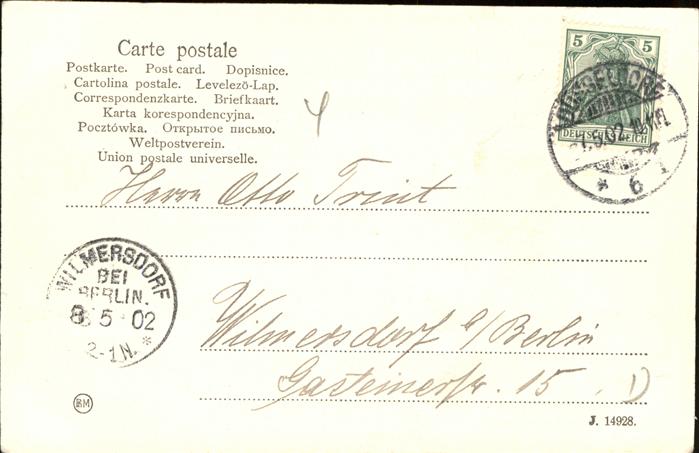 Carte postale
Postkarte. Post card. Dopisnice.
Cartolina postale. Levelező-Lap.
Correspondenzkarte. Briefkaart.
Karta korespondencyjna.
Pocztówka. Открытое письмо.
Weltpostverein.
Union postale universelle.
5 5
DEUTSCHES REICH
5.02
* 6
Herrn Otto Trint
WILMERSDORF
BEI
BERLIN.
8 5 02
2-1N. *
Wilmersdorf b/Berlin
Gasteinerstr. 15
RM
J. 14928.